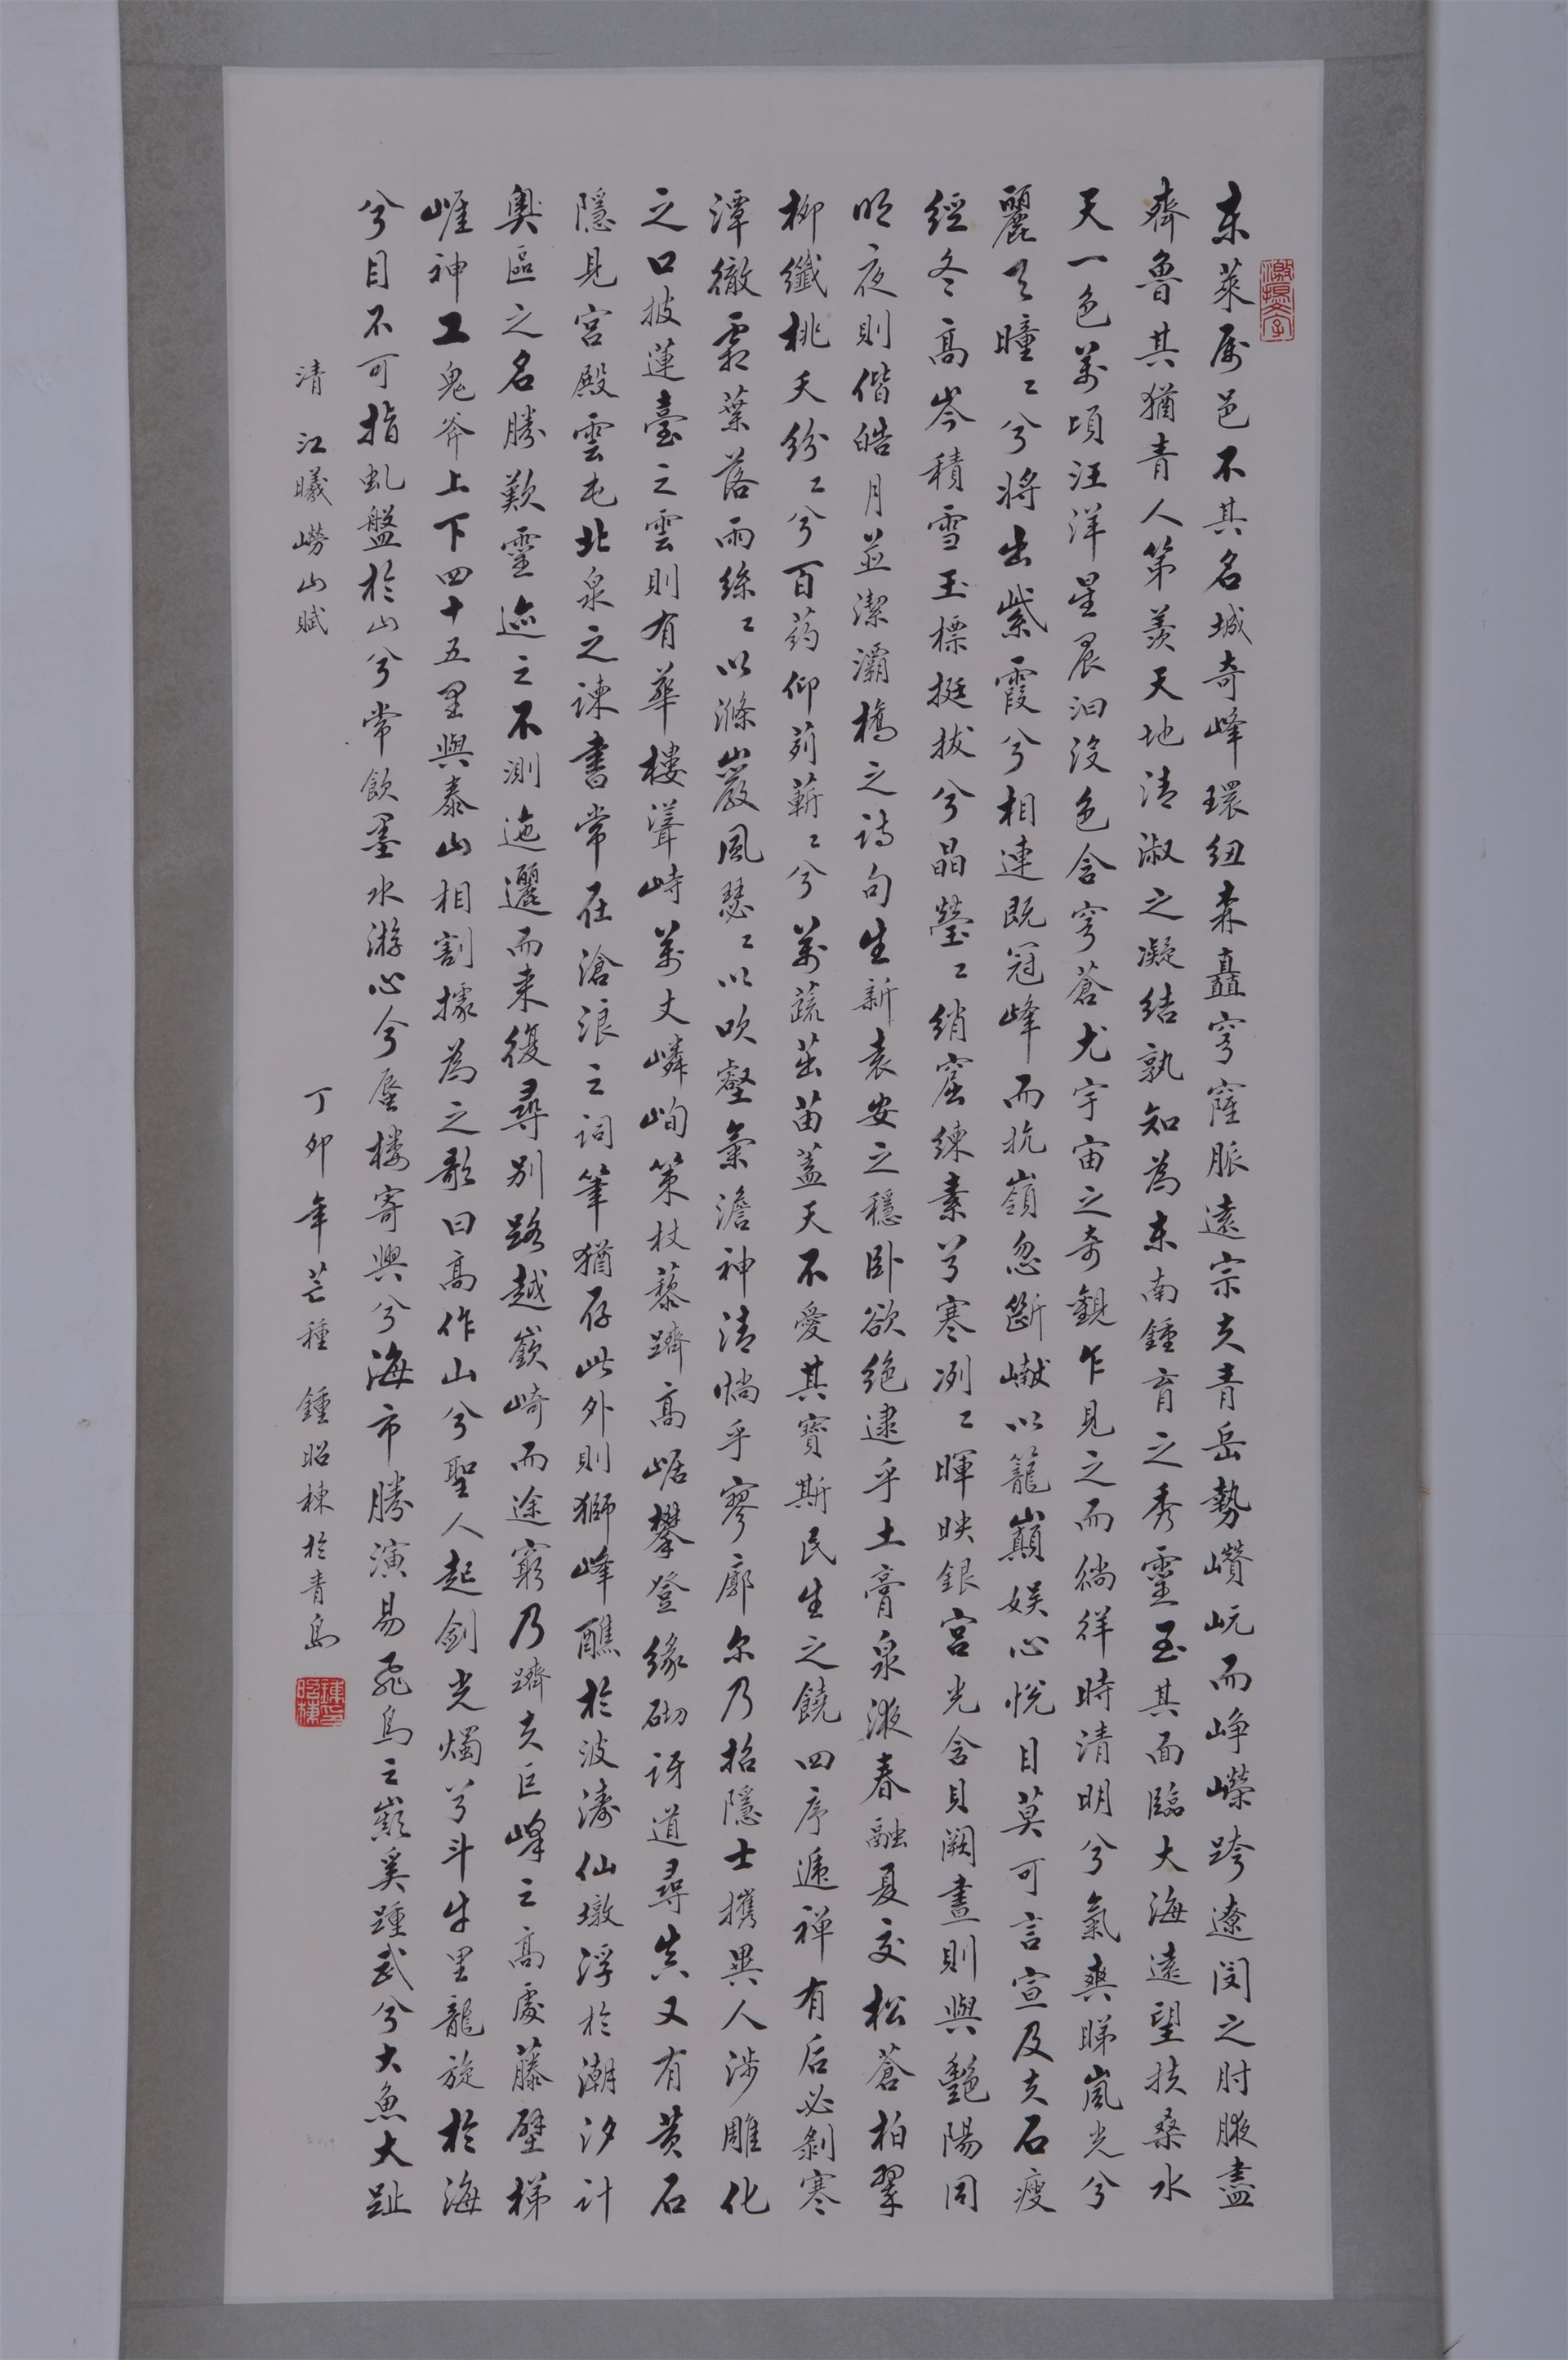 东莱属邑不其名城奇峰環纽森矗穹窿脈遠宗夫青岳勢巑岏而峥嶸跨遼闵之肘腋盡
齊魯其猶青人第羨天地清淑之凝结孰知為东南鍾育之秀靈至其面臨大海遠望扶桑水
天一色萬頃汪洋星辰汩没色含穹蒼尤宇宙之奇觀乍見之而徜徉時清明兮氣爽睇嵐光兮
麗天曈〻兮將出紫霞兮相連既冠峰而抗嶺忽斷巘以籠巔娱心悦目莫可言宣及夫石瘦
經冬高岑積雪玉標挺拔兮晶瑩〻绡窟練素兮寒冽〻暉映銀宫光含貝闕晝則與艷陽同
明夜則偕皓月並潔灞橋之诗句生新袁安之穩卧欲绝逮乎土膏泉液春融夏交松蒼柏翠
柳纖桃夭纷〻兮百药仰荊蘄〻兮萬蔬茁苗蓋天不愛其寶斯民生之饒四序遞禅有后必剝寒
潭徹霜葉落雨絲〻以滌巖風瑟〻以吹壑氣澹神清惝乎寥廓尔乃招隱士攜異人涉雕化
之口披蓮臺之雲則有華樓嶂峙萬丈嶙峋策杖藜躋高崌攀登缘砌訝道尋真又有黄石
隱見宫殿雲屯北泉之諫書常在滄浪之詞筆猶存此外則獅峰醮於波濤仙墩浮於潮汐计
奥區之名勝歎靈迹之不測迤邐而来復尋别路越嶔崎而途窮乃躋夫巨峰之高處藤壁梯
崕神工鬼斧上下四十五里與泰山相割據為之歌曰高作山兮聖人起剑光燭兮斗牛里龍旋於海
兮目不可指虬盤於山兮常飲墨水游心兮蜃楼寄興兮海市勝演易飛鸟之巅奚踵武兮大魚大趾
清 江曦嶗山賦 丁卯年芒種 鍾昭棟於青島